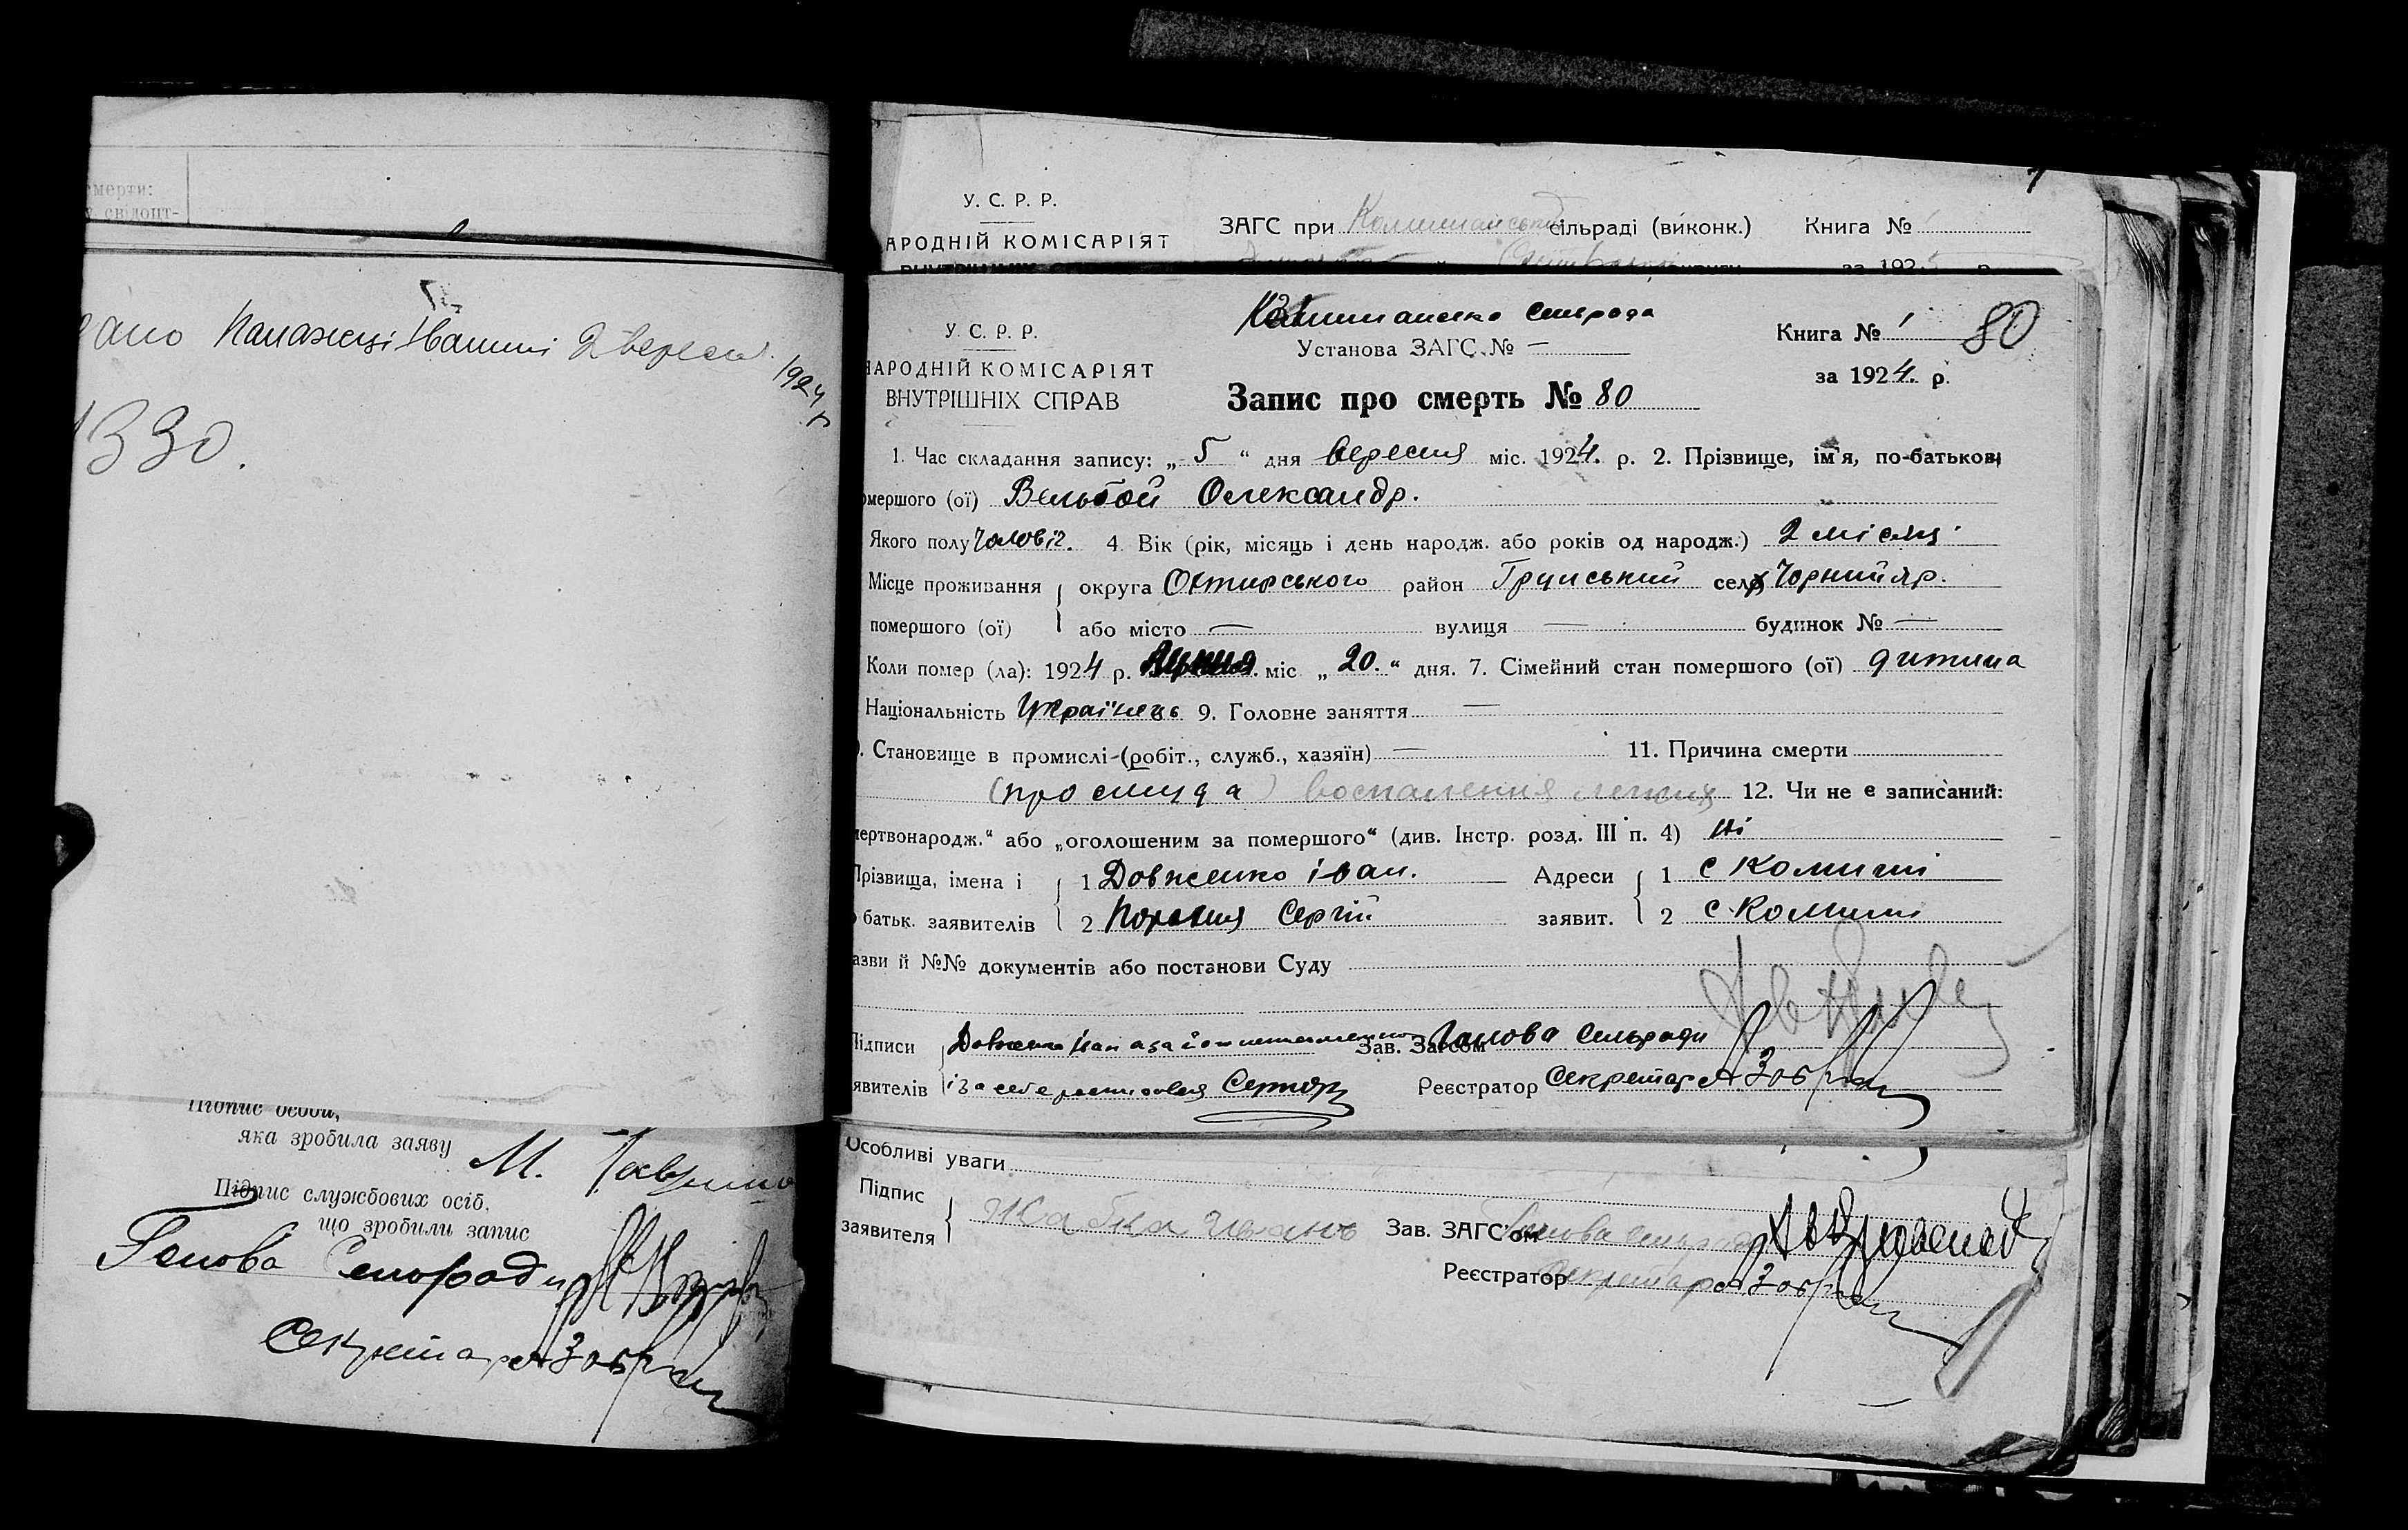 мерти:
свідоцт-
Панажці Іванині 2 вересн. 1924 р
1330.
Підпис особи,
яка зробила заяву М.
Підпис службових осіб,
що зробили запис
Голова Сельради
Секретар
У. С. Р. Р.
АРОДНІЙ КОМІСАРІЯТ
ЗАГС при Комишанській сільраді (виконк.) Книга №
за 192 р
Комишанська сельрада
У. С. Р. Р.
НАРОДНІЙ КОМІСАРІЯТ
ВНУТРІШНІХ СПРАВ
Установа ЗАГС № —
Книга № 1 80
за 1924. р.
Запис про смерть № 80
1. Час складання запису: „ 5 “ дня вересня міс. 1924. р. 2. Прізвище, ім'я, по-батькові
омершого (ої) Вельбой Олександр.
Якого полу Чоловіч. 4. Вік (рік, місяць і день народж. або років од народж.) 2 місяці
Місце проживання округа Охтирського район Грунський село Чорний яр.
помершого (ої) або місто — вулиця — будинок № —
Коли помер (ла): 1924 р. міс „ 20. “ дня. 7. Сімейний стан помершого (ої) дитина
Національність Українець 9. Головне заняття —
. Становище в промислі-(робіт., служб., хазяїн) — 11. Причина смерти
(простуда) воспаления легких 12. Чи не є записаний:
мертвонародж.“ або „оголошеним за помершого“ (див. Інстр. розд. III п. 4) Ні
Прізвища, імена і 1 Довженко Іван. Адреси 1 с Комиші
о батьк. заявителів 2 Сергій заявит. 2 с. Комиші
азви й №№ документів або постанови Суду
Підписи Довженко Зав. Загсом Голова Сельради
явителів і за себе росписовся Сергій Реєстратор Секретар
Особливі уваги
Підпис
заявителя Жабка Иванъ Зав. ЗАГС'ом Голова Сельради
Реєстратор Секретар